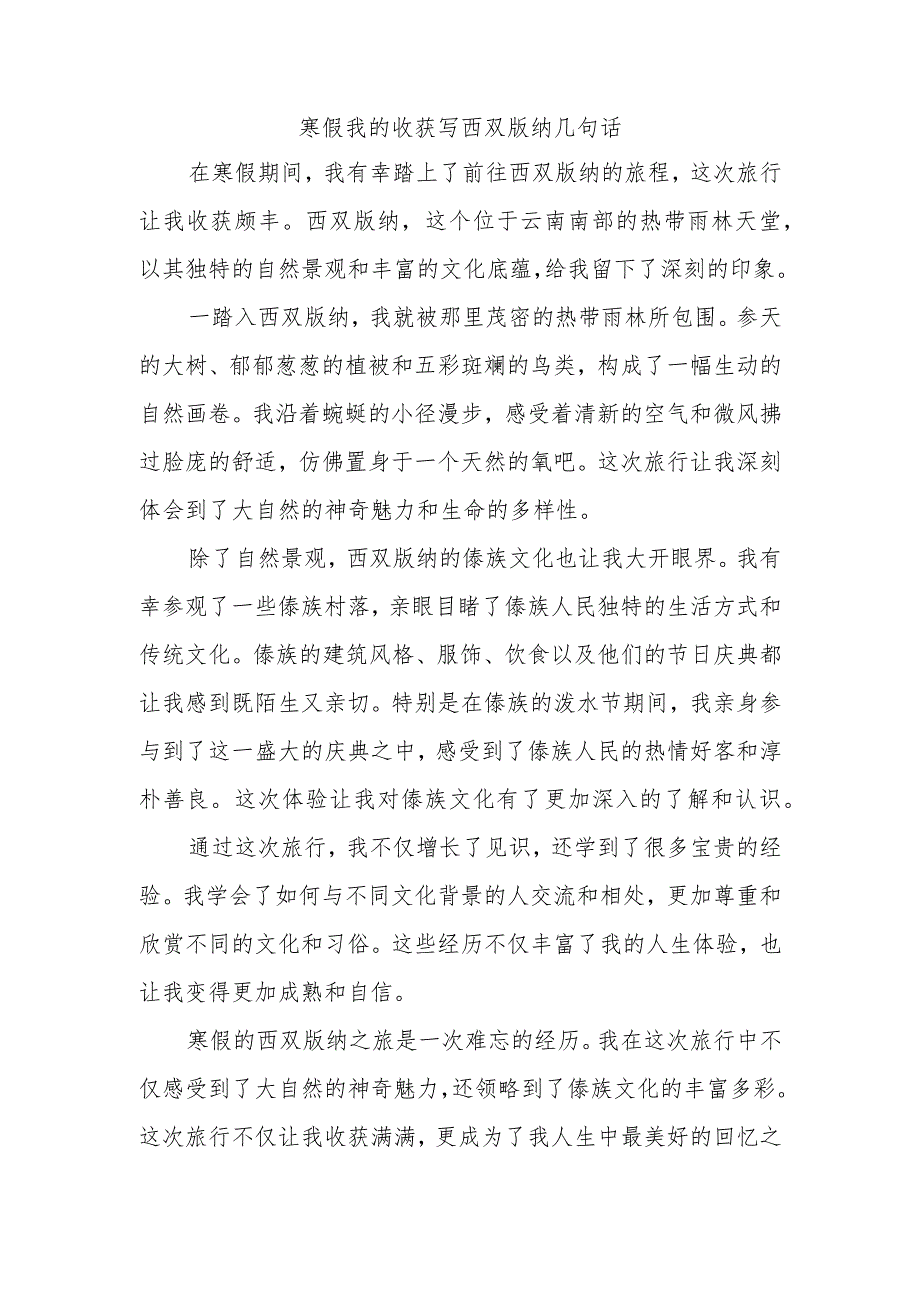 寒假我的收获写西双版纳几句话
在寒假期间，我有幸踏上了前往西双版纳的旅程，这次旅行
让我收获颇丰。西双版纳，这个位于云南南部的热带雨林天堂，
以其独特的自然景观和丰富的文化底蕴，给我留下了深刻的印象。
一踏入西双版纳，我就被那里茂密的热带雨林所包围。参天
的大树、郁郁葱葱的植被和五彩斑斓的鸟类，构成了一幅生动的
自然画卷。我沿着蜿蜒的小径漫步，感受着清新的空气和微风拂
过脸庞的舒适，仿佛置身于一个天然的氧吧。这次旅行让我深刻
体会到了大自然的神奇魅力和生命的多样性。
除了自然景观，西双版纳的傣族文化也让我大开眼界。我有
幸参观了一些傣族村落，亲眼目睹了傣族人民独特的生活方式和
传统文化。傣族的建筑风格、服饰、饮食以及他们的节日庆典都
让我感到既陌生又亲切。特别是在傣族的泼水节期间，我亲身参
与到了这一盛大的庆典之中，感受到了傣族人民的热情好客和淳
朴善良。这次体验让我对傣族文化有了更加深入的了解和认识。
通过这次旅行，我不仅增长了见识，还学到了很多宝贵的经
验。我学会了如何与不同文化背景的人交流和相处，更加尊重和
欣赏不同的文化和习俗。这些经历不仅丰富了我的人生体验，也
让我变得更加成熟和自信。
寒假的西双版纳之旅是一次难忘的经历。我在这次旅行中不
仅感受到了大自然的神奇魅力，还领略到了傣族文化的丰富多彩。
这次旅行不仅让我收获满满，更成为了我人生中最美好的回忆之